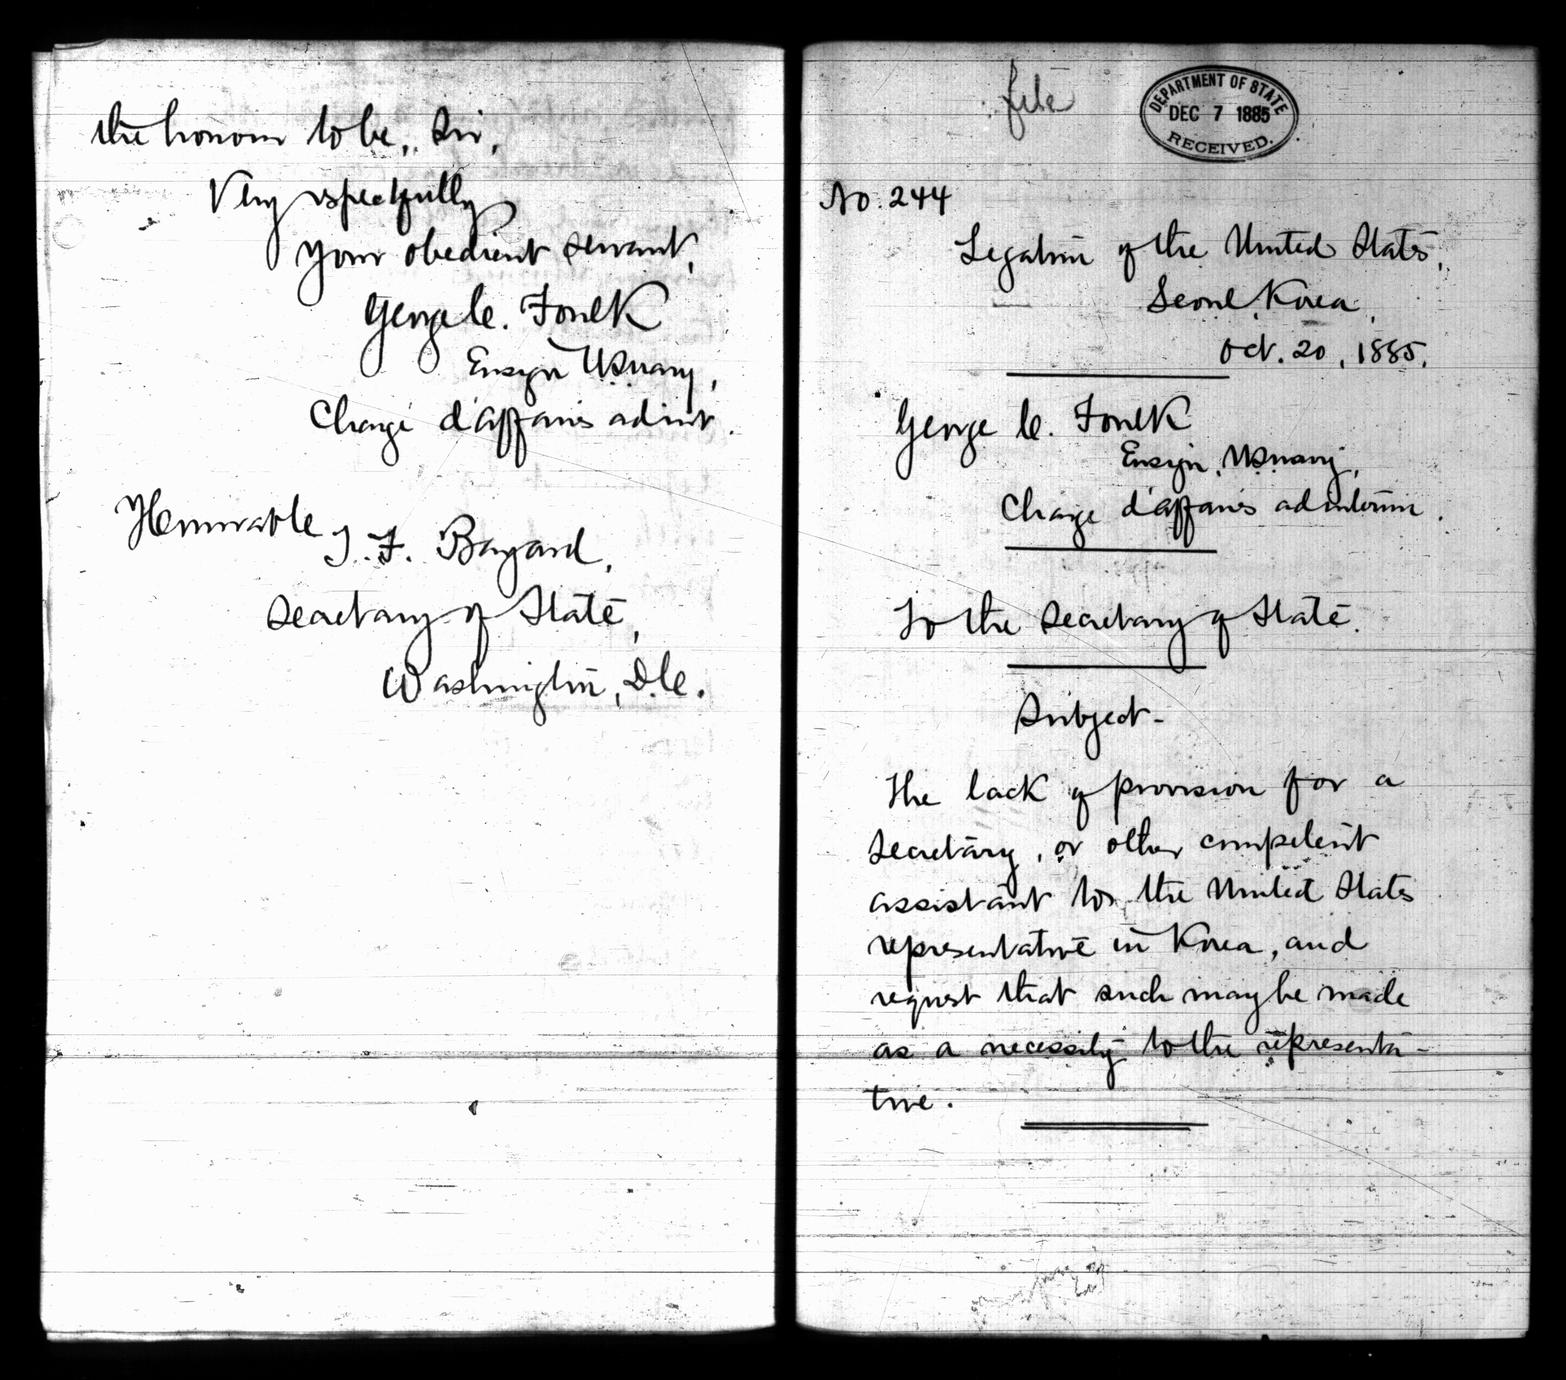 the honour to be, Sir,
Very respectfully
your obedient servant,
George C. Foulk
Ensign U.S. navy,
Chargé d'affaires ad int.
Honorable
T. F. Bayard,
Secretary of State,
Washington, D.C.
file
DEPARTMENT OF STATE
DEC 7 1885
RECEIVED.
No. 244
Legation of the United States,
Seoul, Korea,
Oct. 20, 1885.
George C. Foulk
Ensign, U.S. navy,
Chargé d'affaires ad interim.
To the Secretary of State.
Subject-
The lack of provision for a
secretary, or other competent
assistant to, the United States
representative in Korea, and
request that such may be made
as a necessity to the representa-
tive.